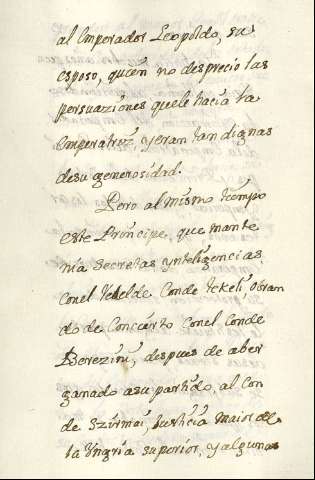 al Emperador Leopoldo, su
esposo, quien no desprecio las
persuaziones quele hacia la
Emperatriz, yeran tan dignas
desu generosidad.
Pero al mismo tiempo
este Principe, que mante
nia secretas ynteligencias
conel Rebelde Conde Tekeli, obran
do de Concierto conel Conde
Berezini, despues de aber
ganado asu partido, al Con
de Szirmai, Justicia maior de
la Yngria superior, yalgunas